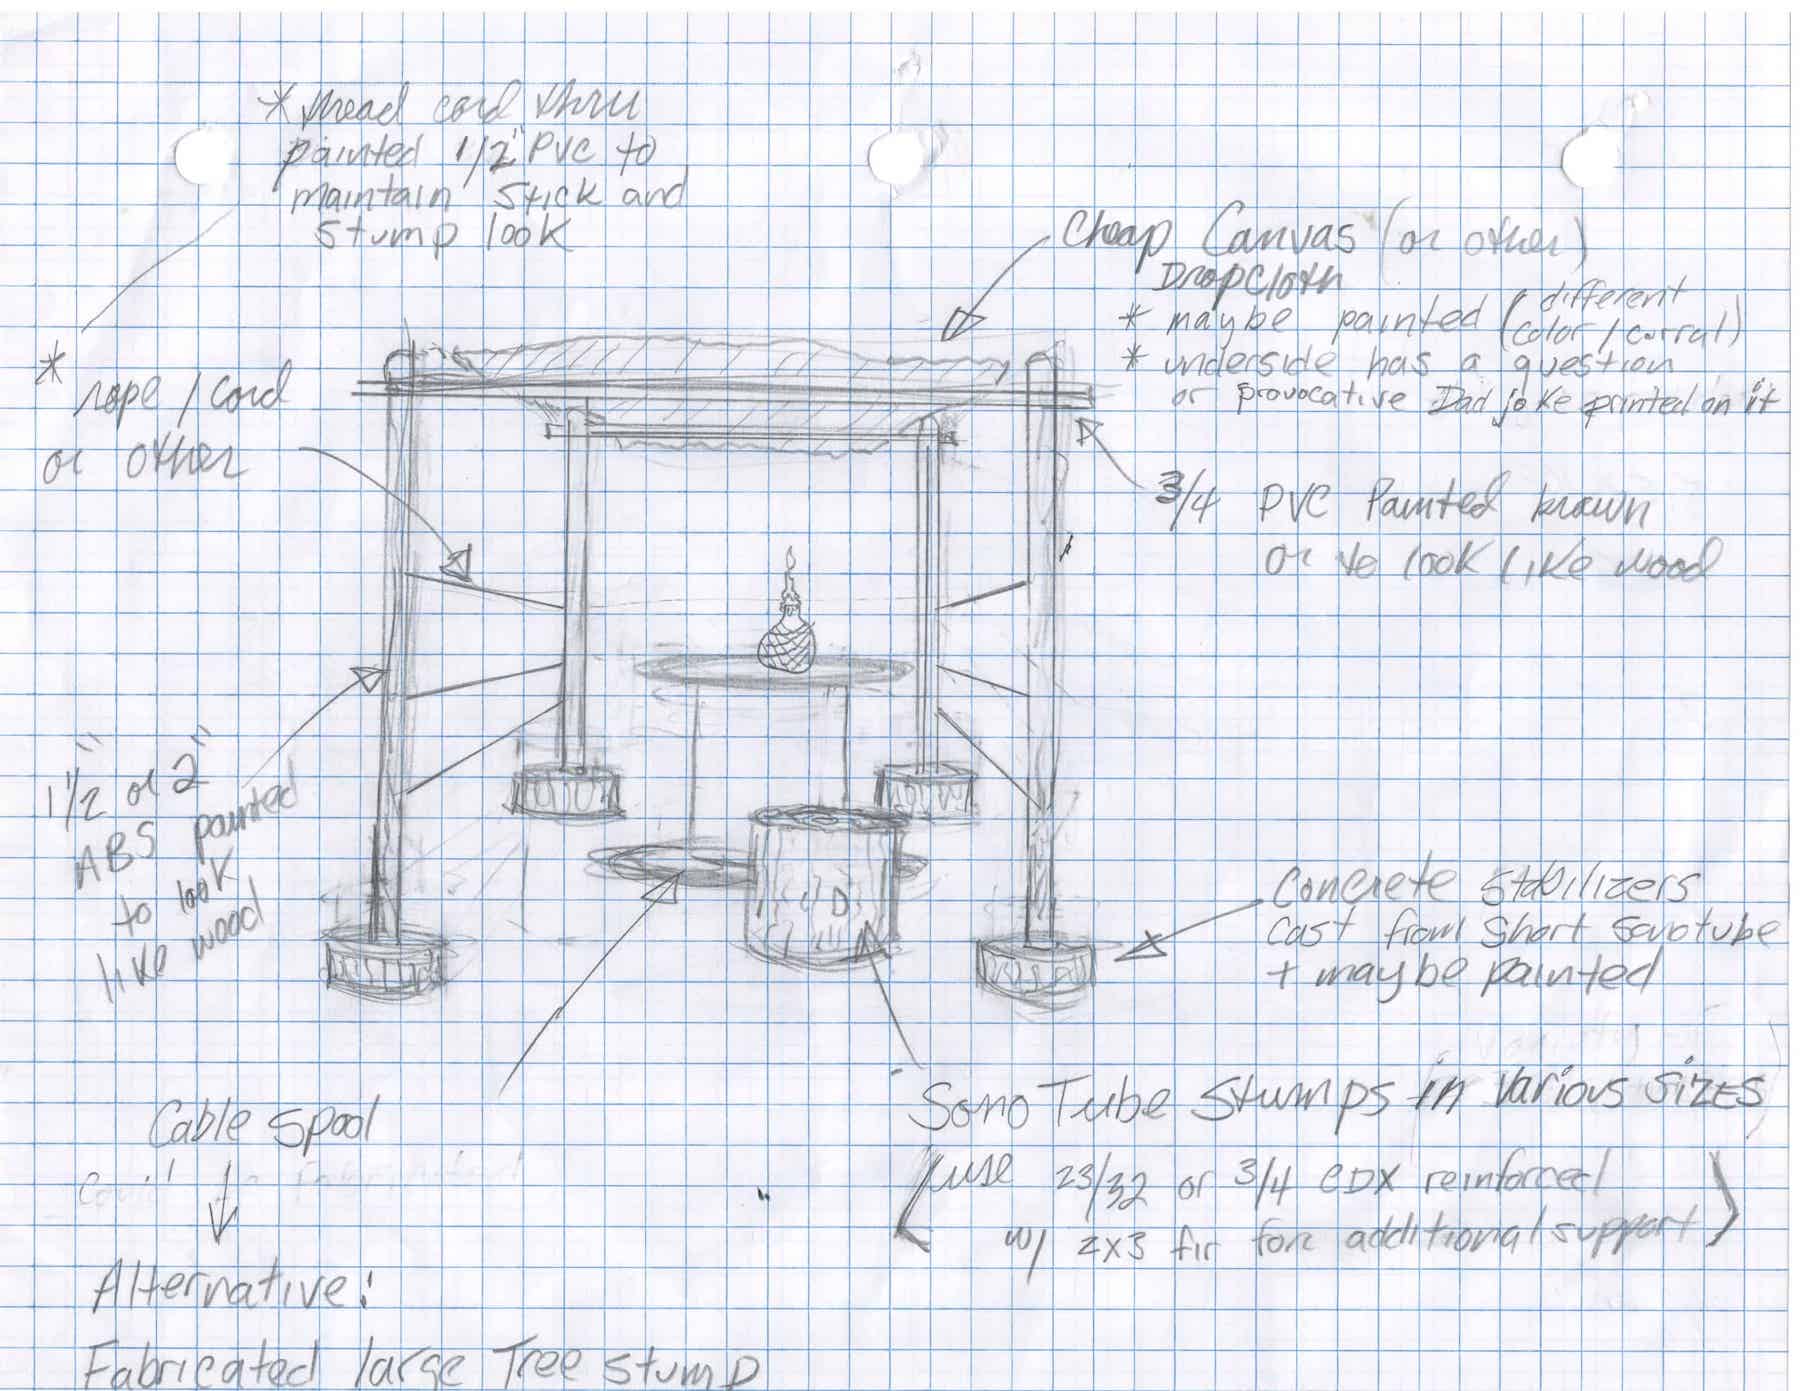 * thread cord thru
painted 1/2" PVC to
maintain stick and
stump look
Cheap Canvas (or other)
Dropcloth
* maybe painted (different
color / curral)
* underside has a question
or provocative Dad joke printed on it
* rope / cord
or other
3/4 PVC Painted brown
or to look like wood
1 1/2" or 2"
ABS painted
to look
like wood
Concrete Stabilizers
cast from Short Sonotube
+ maybe painted
Cable Spool
Alternative:
Fabricated large Tree Stump
Sono Tube Stumps in various SIZES
(use 23/32 or 3/4 CDX reinforced
w/ 2x3 fir for additional support)